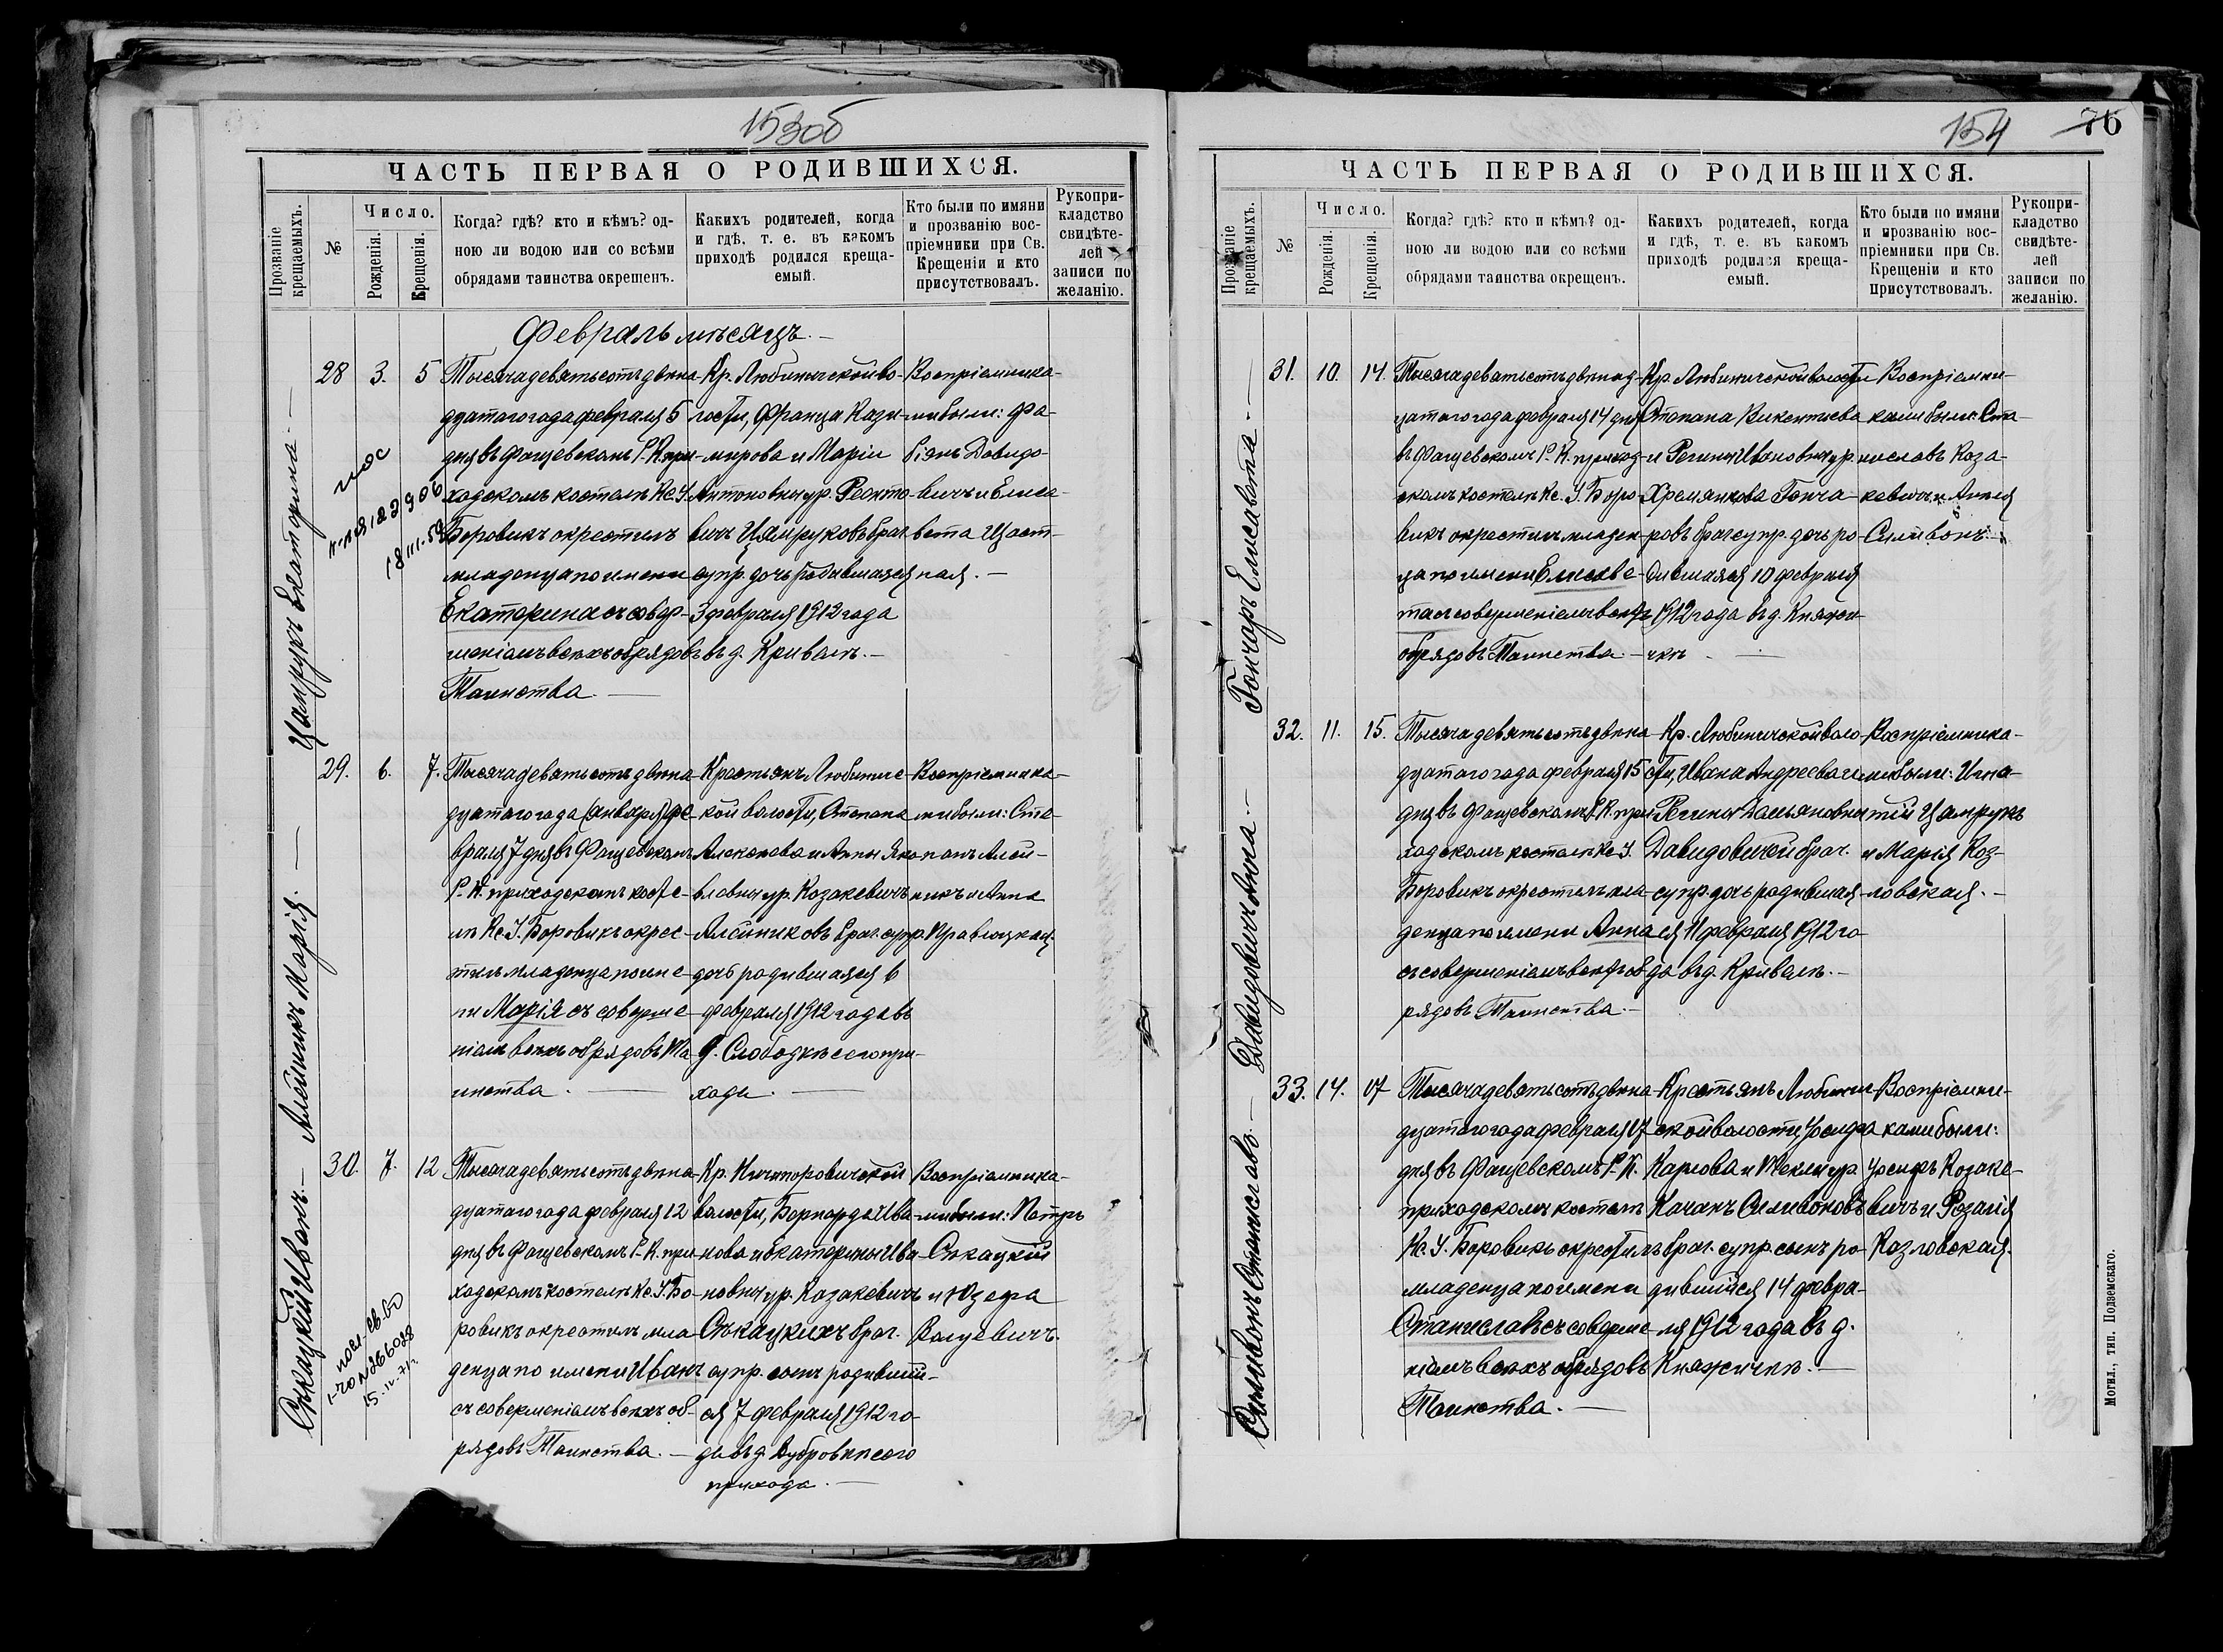 153об
ЧАСТЬ ПЕРВАЯ О РОДИВШИХСЯ.
Прозваніе крещаемыхъ.
№
Число.
Рожденія.
Крещенія.
Когда? гдѣ? кто и кѣмъ? од-
ною ли водою или со всѣми
обрядами таинства окрещенъ.
Какихъ родителей, когда
и гдѣ, т. е. въ какомъ
приходѣ родился креща-
емый.
Кто были по имяни
и прозванію вос-
пріемники при Св.
Крещеніи и кто
присутствовалъ.
Рукопри-
кладство
свидѣте-
лей
записи по
желанію.
Февраль мѣсяцъ.
Цамрукъ Екатерина
28 3. 5
18 III-59
Тысяча девятьсотъ двѣна-
дцатаго года февраля 5
дня въ Фащевскомъ Р.-К. при-
ходскомъ костелѣ Кс. І.
Боровикъ окрестилъ
младенца по имени
Екатерина съ совер-
шеніемъ всѣхъ обрядовъ
Таинства.
Кр. Любиничской во-
лости, Франца Кази-
мирова и Маріи
Антоновны ур.
вичъ Цамруковъ брач.
супр. дочь родившаяся
3 февраля 1912 года
въ д. Кривалѣ.
Воспріемника-
ми были: Фа-
біянъ Давидо-
вичъ и Елиса-
вета Щаст-
ная.
Алейникъ Марія.
29. 6. 7.
Тысяча девятьсотъ двѣна-
дцатаго года (января) фе-
враля 7 дня въ Фащевскомъ
Р.-К. приходскомъ косте-
лѣ Кс. І. Боровикъ окрес-
тилъ младенца по име-
ни Марія съ соверше-
ніемъ всѣхъ обрядовъ Та-
инства.
Крестьянъ Любинич-
ской волости, Степана
Алексѣева и Анны Яко-
влевны ур. Козакевичъ
Алейниковъ брач. супр.
дочь родившаяся 6
февраля 1912 года въ
д. Слободкѣ сего при-
хода.
Воспріемника-
ми были: Сте-
панъ Алей-
никъ и Анна
Правлоцкая.
Сѣкацкій Иванъ.
30. 7. 12
пасп. св-во
1-ЧО №266028
15-IV-71г.
Тысяча девятьсотъ двѣна-
дцатаго года февраля 12
дня въ Фащевскомъ Р.-К. при-
ходскомъ костелѣ Кс. І. Бо-
ровикъ окрестилъ мла-
денца по имени Иванъ
съ совершеніемъ всѣхъ об-
рядовъ Таинства.
Кр. Ничипоровичской
волости, Бернарда Ива-
нова и Екатерины Ива-
новны ур. Козакевичъ
Сѣкацкихъ брач.
супр. сынъ родившій-
ся 7 февраля 1912 го-
да въ д. Дубровѣ сего
прихода.
Воспріемника-
ми были: Петръ
Сѣкацкій
и Юзефа
Волцевичъ.
154
76
ЧАСТЬ ПЕРВАЯ О РОДИВШИХСЯ.
Прозваніе крещаемыхъ.
№
Число.
Рожденія.
Крещенія.
Когда? гдѣ? кто и кѣмъ? од-
ною ли водою или со всѣми
обрядами таинства окрещенъ.
Какихъ родителей, когда
и гдѣ, т. е. въ какомъ
приходѣ родился креща-
емый.
Кто были по имяни
и прозванію вос-
пріемники при Св.
Крещеніи и кто
присутствовалъ.
Рукопри-
кладство
свидѣте-
лей
записи по
желанію.
Гончаръ Елисавета
31. 10. 14.
Тысяча девятьсотъ двѣнад-
цатаго года февраля 14 дня
въ Фащевскомъ Р.-К. приход-
скомъ костелѣ Кс. І. Боро-
викъ окрестилъ младен-
ца по имени Елисаве-
та съ совершеніемъ всѣхъ
обрядовъ Таинства.
Кр. Любиничской волости
Степана Викентіева
и Регины Ивановны ур.
Хремянкова Гонча-
ровъ брач. супр. дочь ро-
дившаяся 10 февраля
1912 года въ д. Княжи-
чкѣ
Воспріемни-
ками были: Ста-
ниславъ Коза-
кевичъ и Анеля
Силивонъ.
Давидовичъ Анна.
32. 11. 15.
Тысяча девятьсотъ двѣна-
дцатаго года февраля 15
дня въ Фащевскомъ Р.-К. при-
ходскомъ костелѣ Кс. І.
Боровикъ окрестилъ мла-
денца по имени Анна
съ совершеніемъ всѣхъ об-
рядовъ Таинства.
Кр. Любиничской воло-
сти, Ивана Андреева и
Регины Дамьяновны
Давидовичей брач.
супр. дочь родившая-
ся 11 февраля 1912 го-
да въ д. Кривалѣ.
Воспріемника-
ми были: Игна-
тій Цамрукъ
и Марія Коз-
ловская.
Силивонъ Станиславъ.
33. 14. 17
Тысяча девятьсотъ двѣна-
дцатаго года февраля 17
дня въ Фащевскомъ Р.-К.
приходскомъ костелѣ
Кс. І. Боровикъ окрестилъ
младенца по имени
Станиславъ съ соверше-
ніемъ всѣхъ обрядовъ
Таинства.
Крестьянъ Любинич-
ской волости, Іосифа
Карлова и Теклы ур.
Каханъ Силивоновъ
брач. супр. сынъ ро-
дившійся 14 февра-
ля 1912 года въ д.
Княжичкѣ.
Воспріемни-
ками были:
Іосифъ Козаке-
вичъ и Розалія
Козловская.
Могил., тип. Подземскаго.